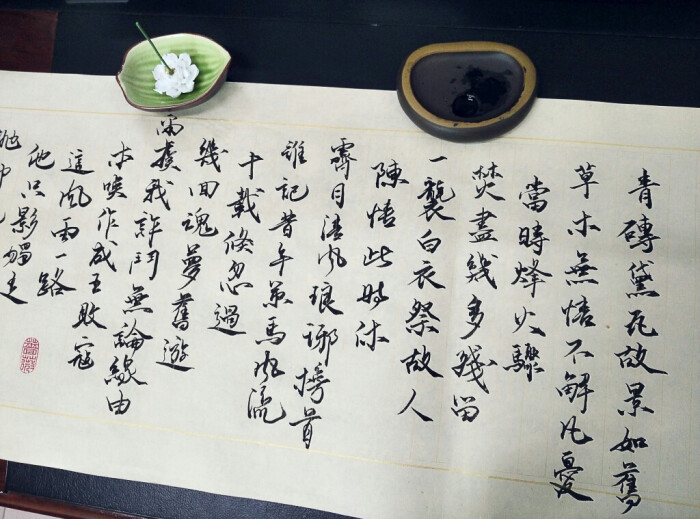 青磚黛瓦故景如舊
草木無情不解凡憂
當時烽火驟
焚盡幾多殘留
一襲白衣祭故人
陳情此時休
霽月清風琅琊榜首
誰記昔年策馬風流
十載倏忽過
幾回魂夢舊遊
爾虞我詐鬥無論緣由
本喚作成王敗寇
這風雨一路
他只影獨走